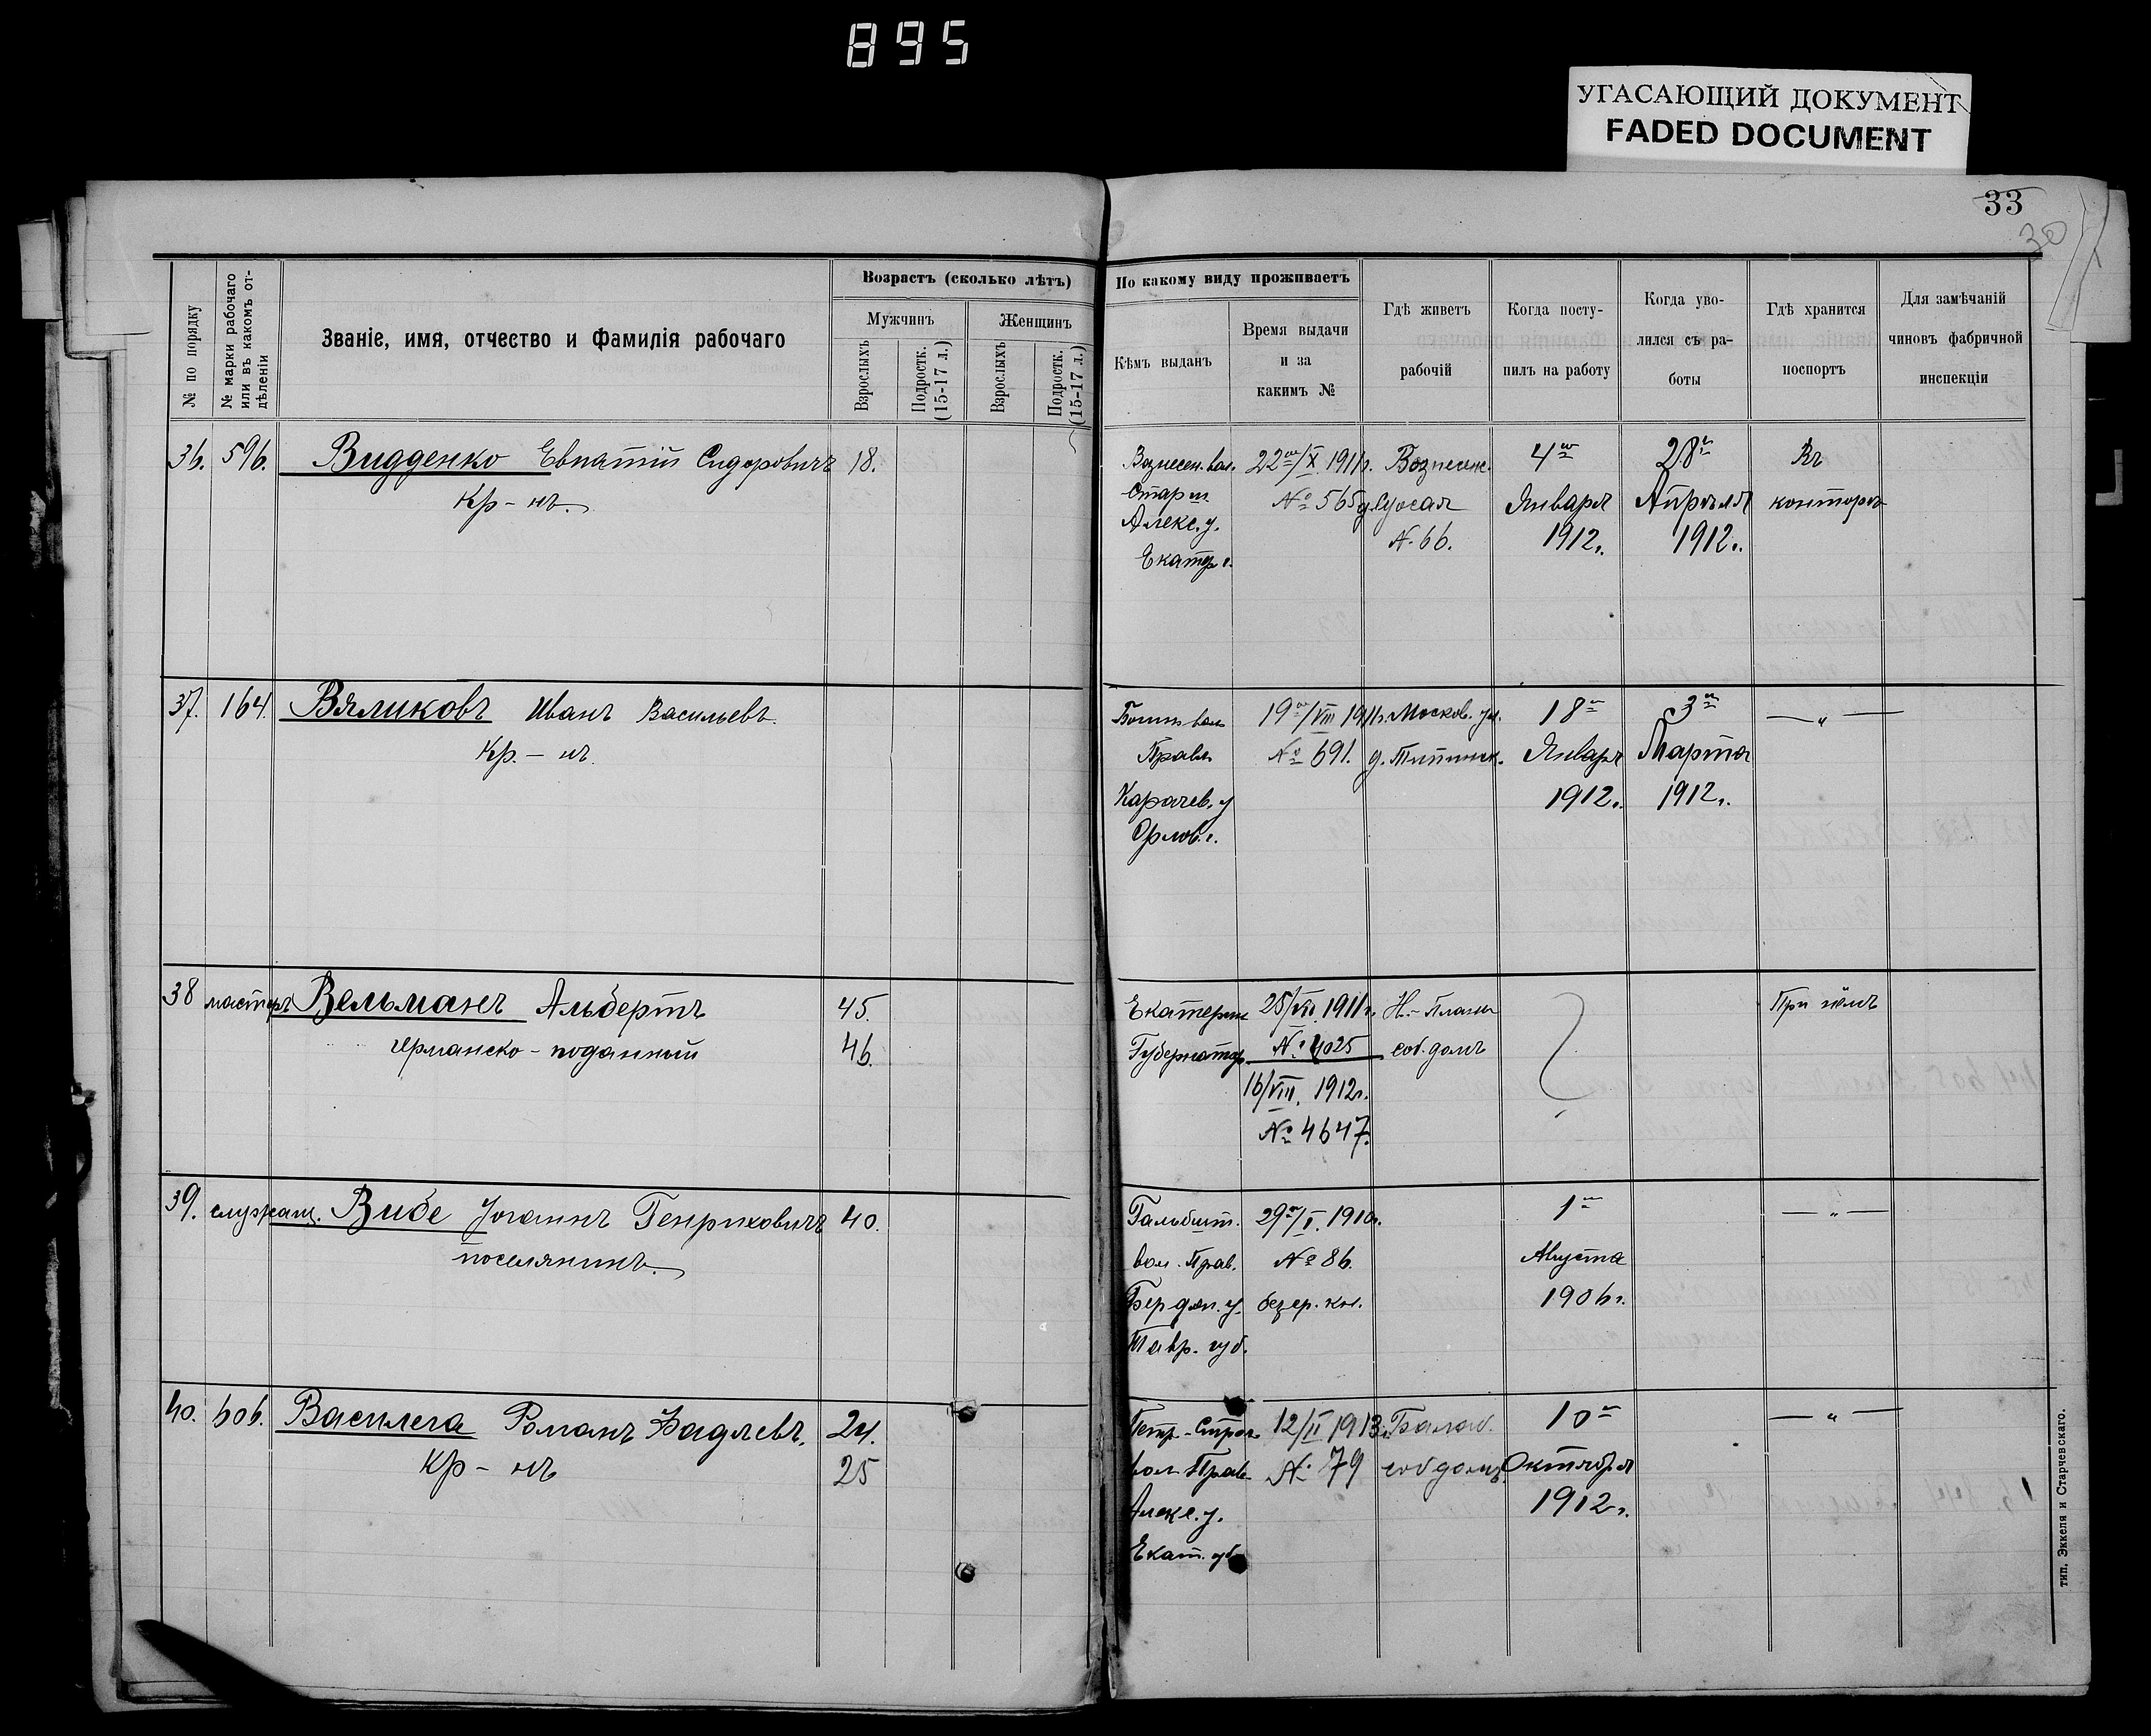 895
УГАСАЮЩИЙ ДОКУМЕНТ
FADED DOCUMENT
33
30
№ по порядку
№ марки рабочаго или въ какомъ отдѣленіи
Званіе, имя, отчество и фамилія рабочаго
Возрастъ (сколько лѣтъ)
Мужчинъ
Женщинъ
Взрослыхъ
Подростк. (15-17 л.)
Взрослыхъ
Подростк. (15-17 л.)
По какому виду проживаетъ
Кѣмъ выданъ
Время выдачи
и за
какимъ №
Гдѣ живетъ
рабочій
Когда посту-
пилъ на работу
Когда уво-
лился съ ра-
боты
Гдѣ хранится
поспортъ
Для замѣчаній
чиновъ фабричной
инспекціи
36. 596. Видденко Евпатій Сидоровичъ 18.
Кр-нъ.
Вознесен. вол.
Старш.
Алекс. у.
Екатер. г.
22го/X 1911г.
№ 565
Вознесенс.
№ 66.
4го
Января
1912г.
28го
Апрѣля
1912г.
Въ
конторѣ
37. 164. Вяликовъ Иванъ Васильевъ.
Кр.-нъ.
вол
Правл
Карачев. у
Орлов. г.
19го/VIII 1911г.
№ 691.
Москов. ул.
18го
Января
1912г.
3го
Марта
1912г.
— „ —
38 мастеръ Вельманъ Альбертъ 45.
Германско-поданный 46.
Екатерин
Губернатор
25/VII 1911г.
№ 4025
16/VIII. 1912г.
№ 4647.
Н.-Плани
соб. домъ
При нёмъ
39. служащ. Вибе Іоганнъ Генриховичъ 40.
поселянинъ.
Гальбшт.
вол. Прав.
Бердян. у.
Тавр. губ.
29го/I. 1910г.
№ 86.
безср. кн.
1го
Августа
1906г.
— „ —
40. 606. Василега Романъ Фадѣевъ. 24.
Кр-нъ 25
Петр-
вол. Прав
Алекс. у.
Екат. губ
12/II 1913г.
№ 79
Балаб.
соб домъ
10го
Октября
1912г.
— „ —
тип. Эккеля и Старчевскаго.